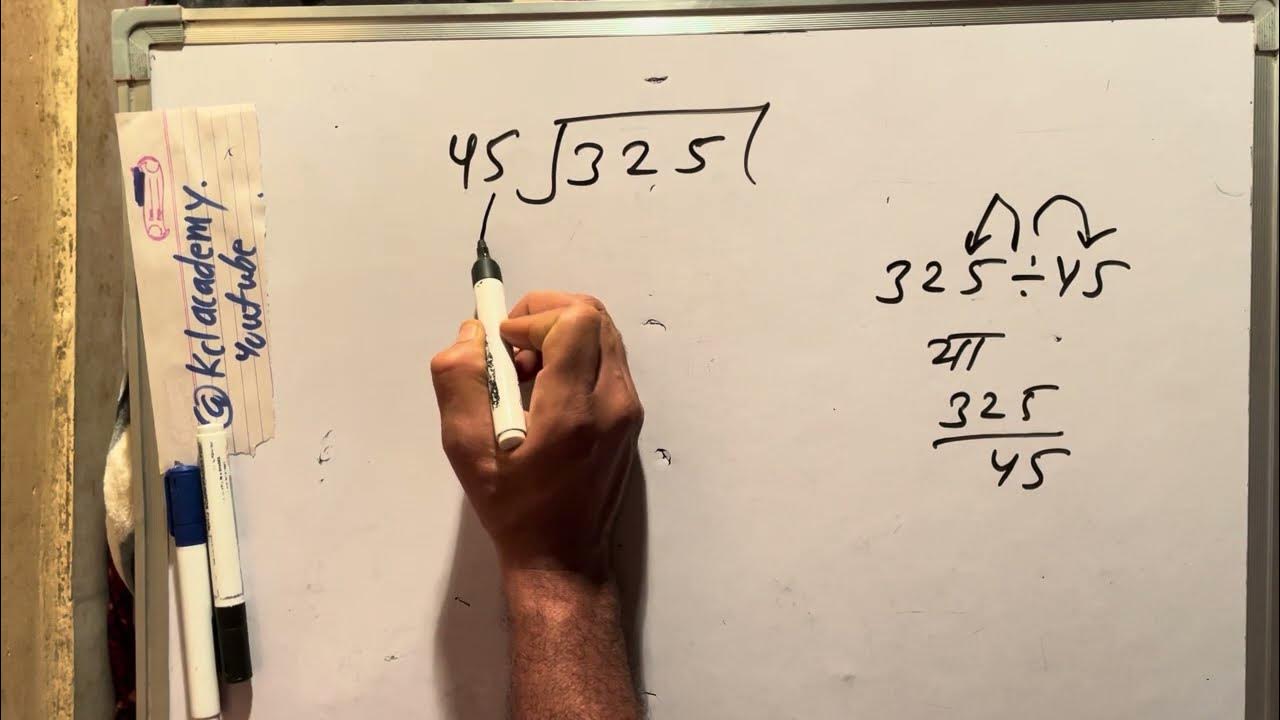 @Kclacademy.
Youtube
45)325(
325÷45
या
325
45